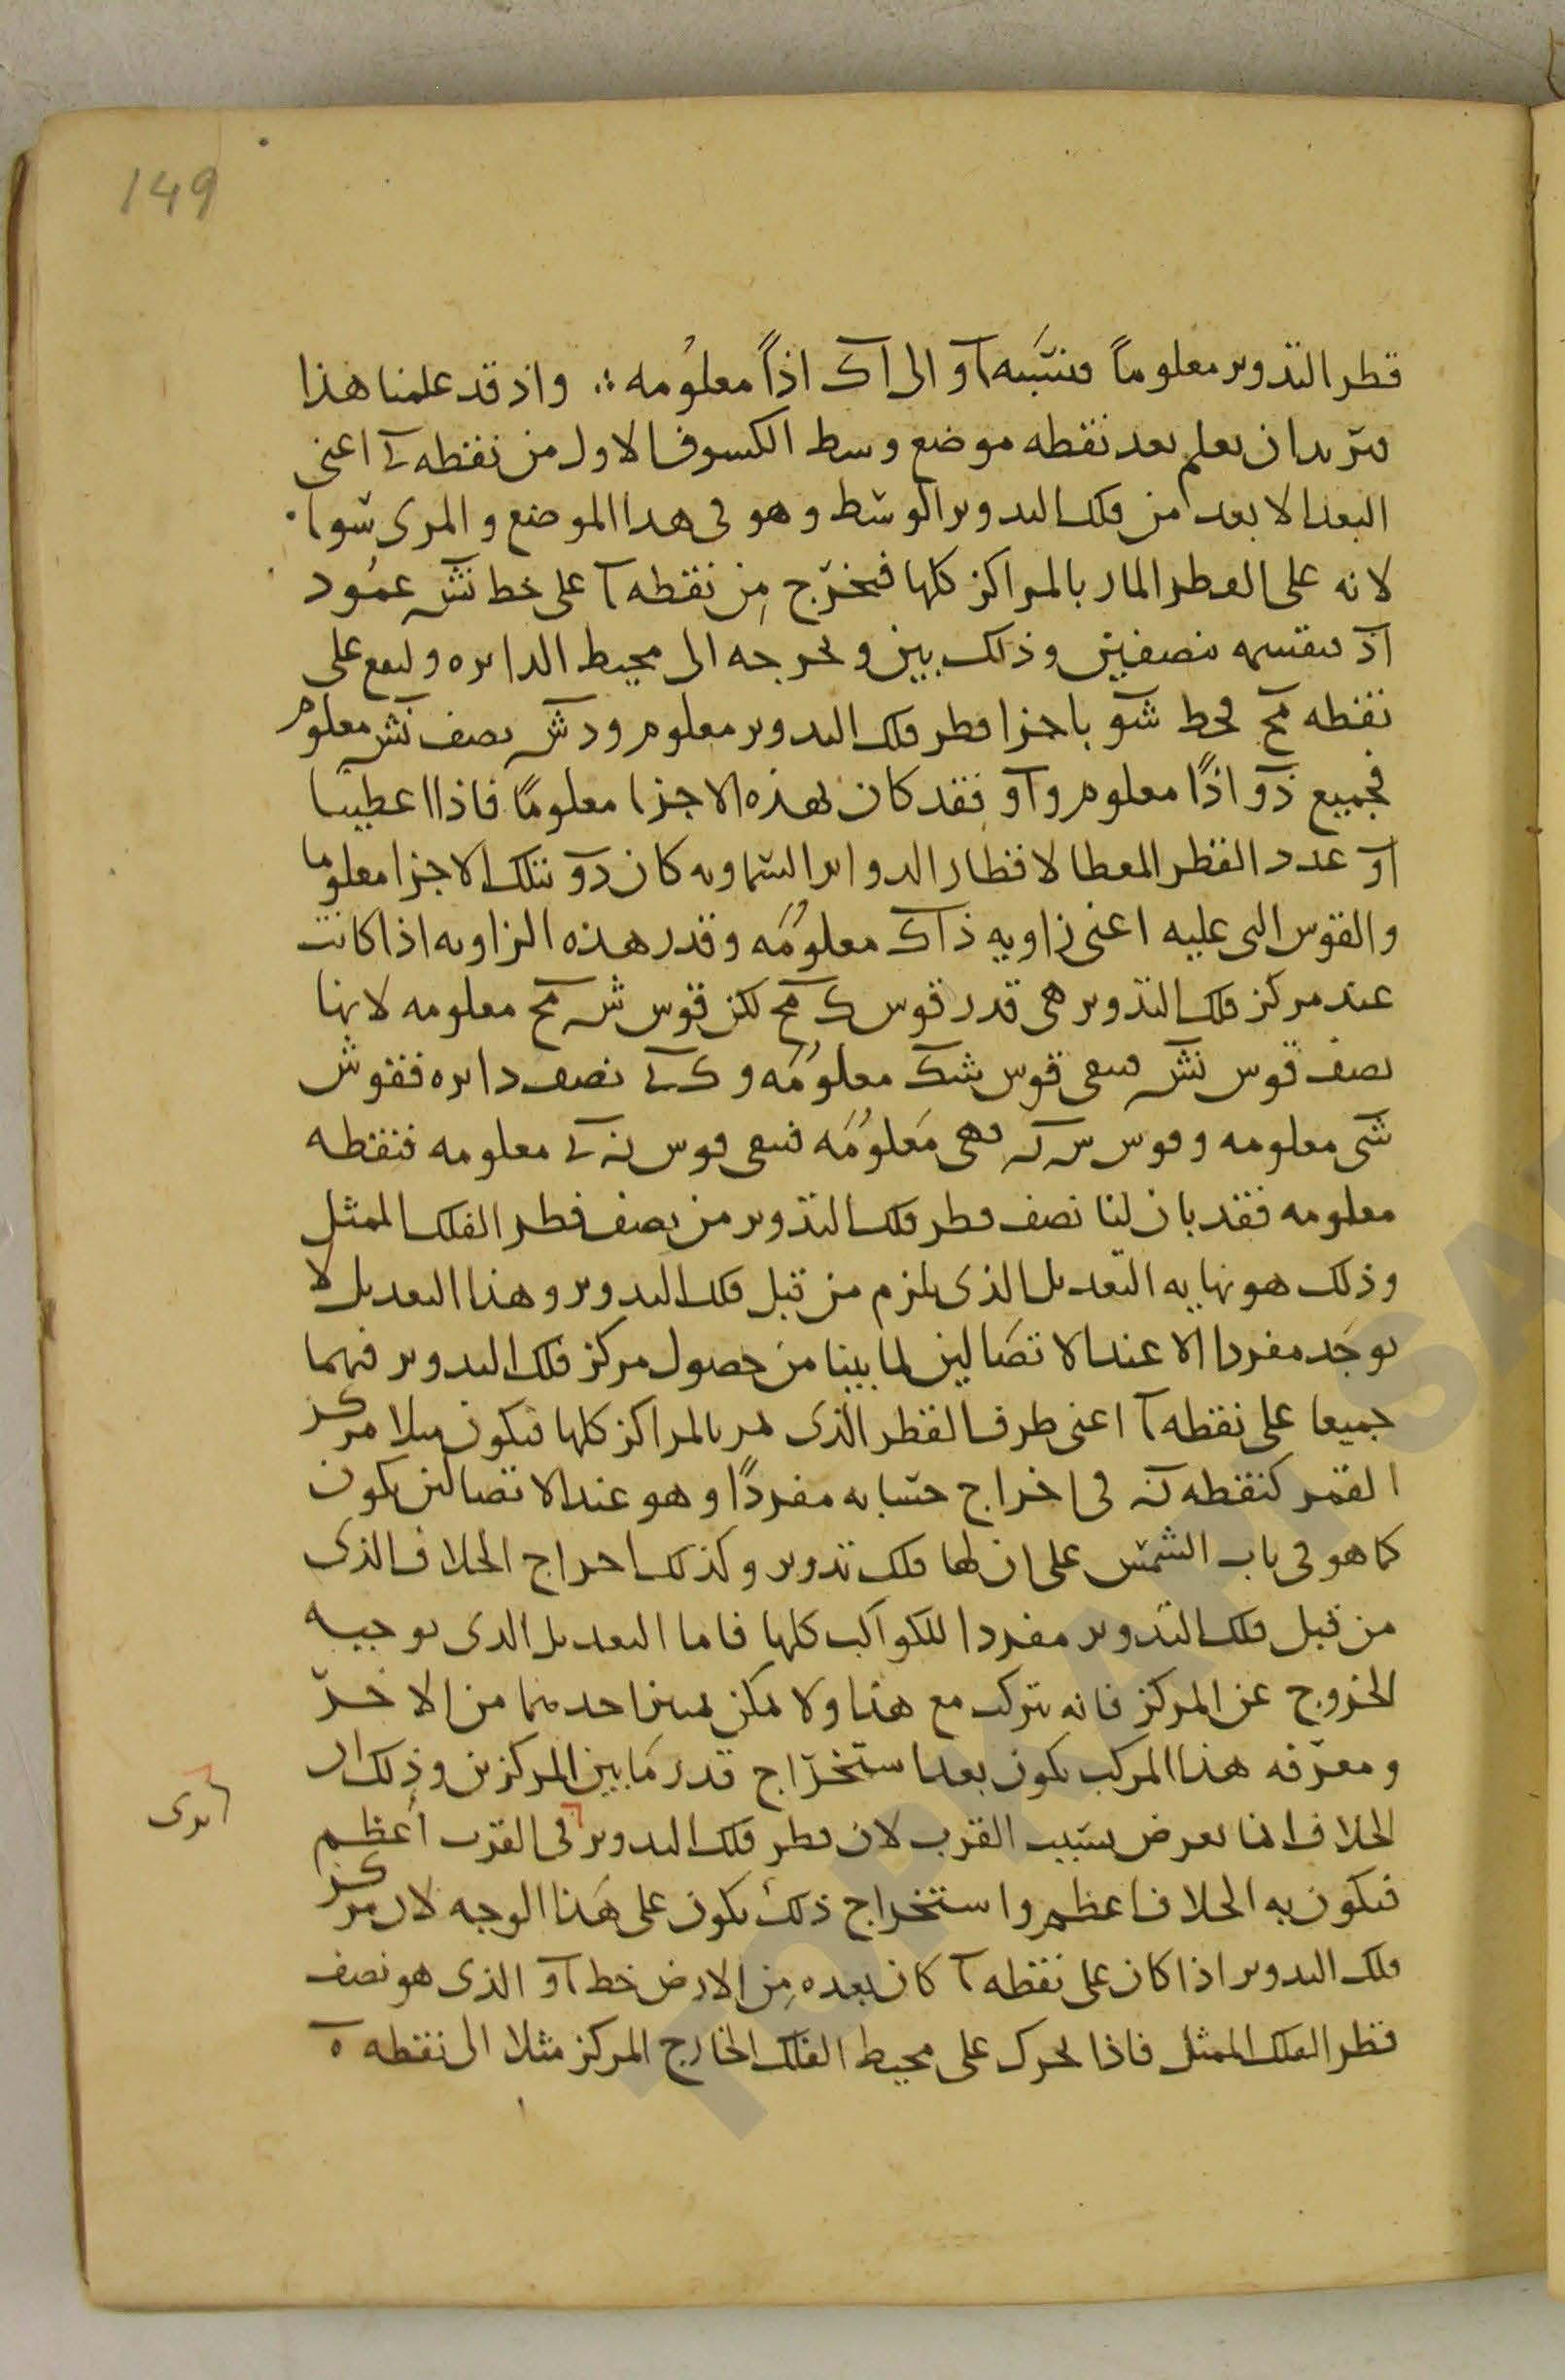 149
قطر التدوير معلوماً فنسبه آو الى آک اذاً معلومه ؞ واذ قد علمنا هذا
نريد ان نعلم بعد نقطه موضع وسط الكسوف الاول من نقطه ى اعنى
البعد الابعد من فلك التدوير الوسط وهو فى هذا الموضع والمرى سوا
لانه على القطر المار بالمراكز كلها فنخرج من نقطه آ على خط نش عمود
آذ فنقسمه بنصفين وذلك بين ونخرجه الى محيط الدايره وليقع على
نقطه مح فخط شو باجزا قطر فلك التدوير معلوم وذش نصف نش معلوم
فجميع ذو اذاً معلوم وآو فقد كان بهذه الاجزا معلومًا فاذا اعطينا
آو عدد القطر المعطا لاقطار الدواير السماويه كان ذو بتلك الاجزا معلوما
والقوس التى عليه اعنى زاويه ذآک معلومَه وقدر هذه الزاويه اذا كانت
عند مركز فلك التدوير هى قدر قوس ک مح لكن قوس ش مح معلومه لانها
نصف قوس نش فتبقى قوس شک معلومَه وک ى نصف دايره فقوس
شى معلومه وقوس س نه فهى مَعلومَه فتبقى قوس نه ى معلومه فنقطه
معلومه فقد بان لنا نصف قطر فلك التدوير من نصف قطر الفلك الممثل
وذلك هو نهايه التعديل الذى يلزم من قبل فلك التدوير وهذا التعديل لا
يوجَد مفردا الا عند الاتصَالين لما بينا من حصول مركز فلك التدوير فيهما
جميعا على نقطه آ اعنى طرف القطر الذى يمر بالمراكز كلها فيكون مثلا مركز
القمر كنقطه نه فى اخراج حسابه مفردًا وهو عند الاتصالين يكون
كما هو فى باب الشمس على ان لها فلك تدوير وكذلك اخراج الخلاف الذى
من قبل فلك التدوير مفردا للكواكب كلها فاما التعديل الذى يوجبه
الخروج عن المركز فانه يتركب مع هذا ولا يمكن تمييز احدهما من الاخر
ومعرفه هذا المركب يكون بعد استخراج قدر مَا بين المركزين وذلك ان
الخلاف انما يعرض بسبب القرب لان قطر فلك التدوير فى القرب اَعظم
فيكون به الخلاف اعظم واستخراج ذلك يكون على هَذا الوجه لان مركز
فلك التدوير اذا كان على نقطه آ كان بعده من الارض خط آو الذى هو نصف
قطر الفلك الممثل فاذا تحرك على محيط الفلك الخارج المركز مثلا الى نقطه ه